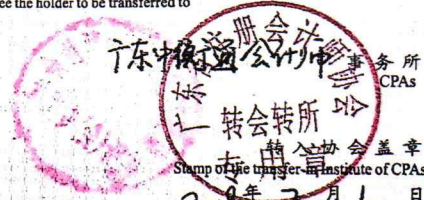 ee the holder to be transferred to
广东中 会计师 事务所
CPAs
广东 册会计师协会
转会转所
专用章
转入协会盖章
Stamp of the transfer-in Institute of CPAs
年 月 日